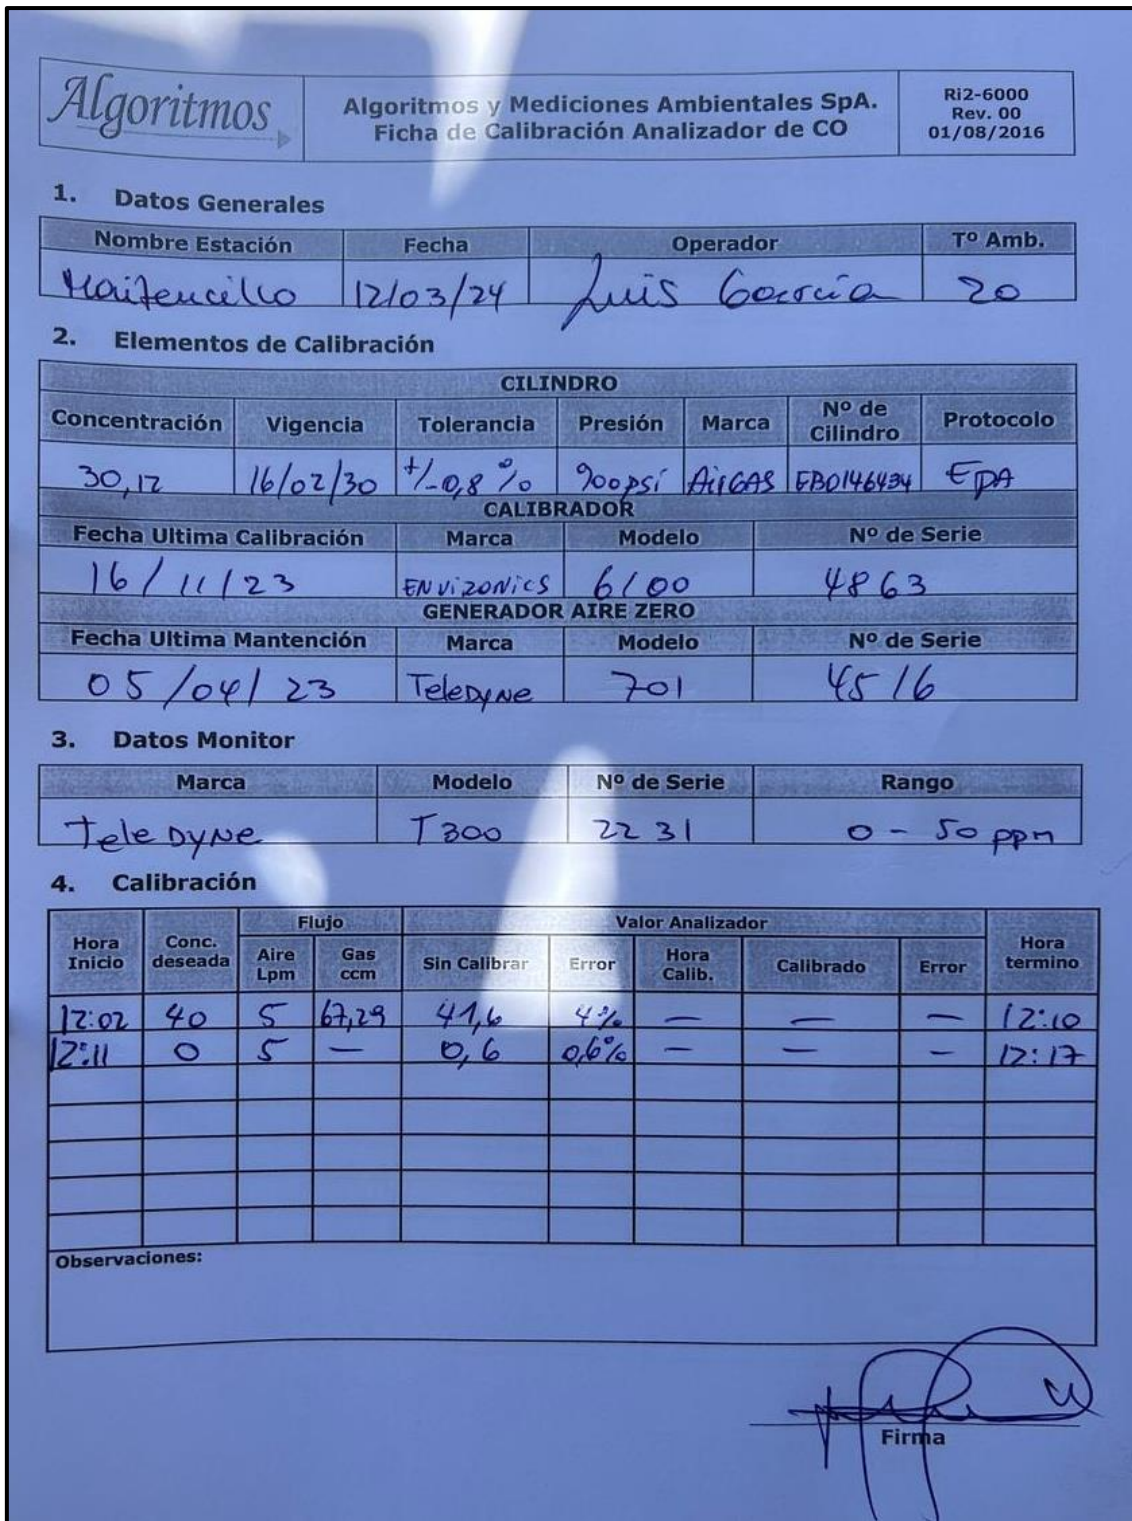 Algoritmos
Algoritmos y Mediciones Ambientales SpA.
Ficha de Calibración Analizador de CO
Ri2-6000
Rev. 00
01/08/2016
1. Datos Generales
Nombre Estación Fecha Operador Tº Amb.
Maitencillo 12/03/24 Luis García 20
2. Elementos de Calibración
CILINDRO
Concentración Vigencia Tolerancia Presión Marca Nº de Cilindro Protocolo
30,12 16/02/30 +/-0,8 % 900 psi AirGAS EB0146434 EPA
CALIBRADOR
Fecha Ultima Calibración Marca Modelo Nº de Serie
16/11/23 ENVIZONICS 6100 4863
GENERADOR AIRE ZERO
Fecha Ultima Mantención Marca Modelo Nº de Serie
05/04/23 TeleDyNe 701 4516
3. Datos Monitor
Marca Modelo Nº de Serie Rango
TeleDyNe T300 2231 0 - 50 ppm
4. Calibración
Flujo Valor Analizador
Hora Inicio Conc. deseada Aire Lpm Gas ccm Sin Calibrar Error Hora Calib. Calibrado Error Hora termino
12:02 40 5 67,29 41,6 4% — — — 12:10
12:11 0 5 — 0,6 0,6% — — — 12:17
Observaciones:
Firma